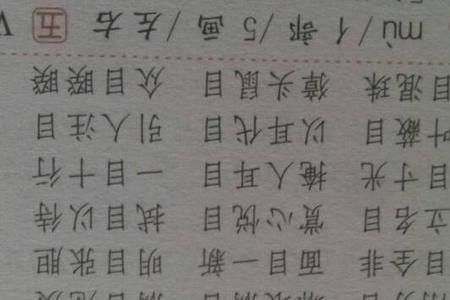 目全非 面目一新 明目张胆
立名目 赏心悦目 拭目以待
目寸光 掩人耳目 一目十行
叶蔽目 以耳代目 引人注目
目混珠 獐头鼠目 众目睽睽
mù/亻部/5画/左右 五